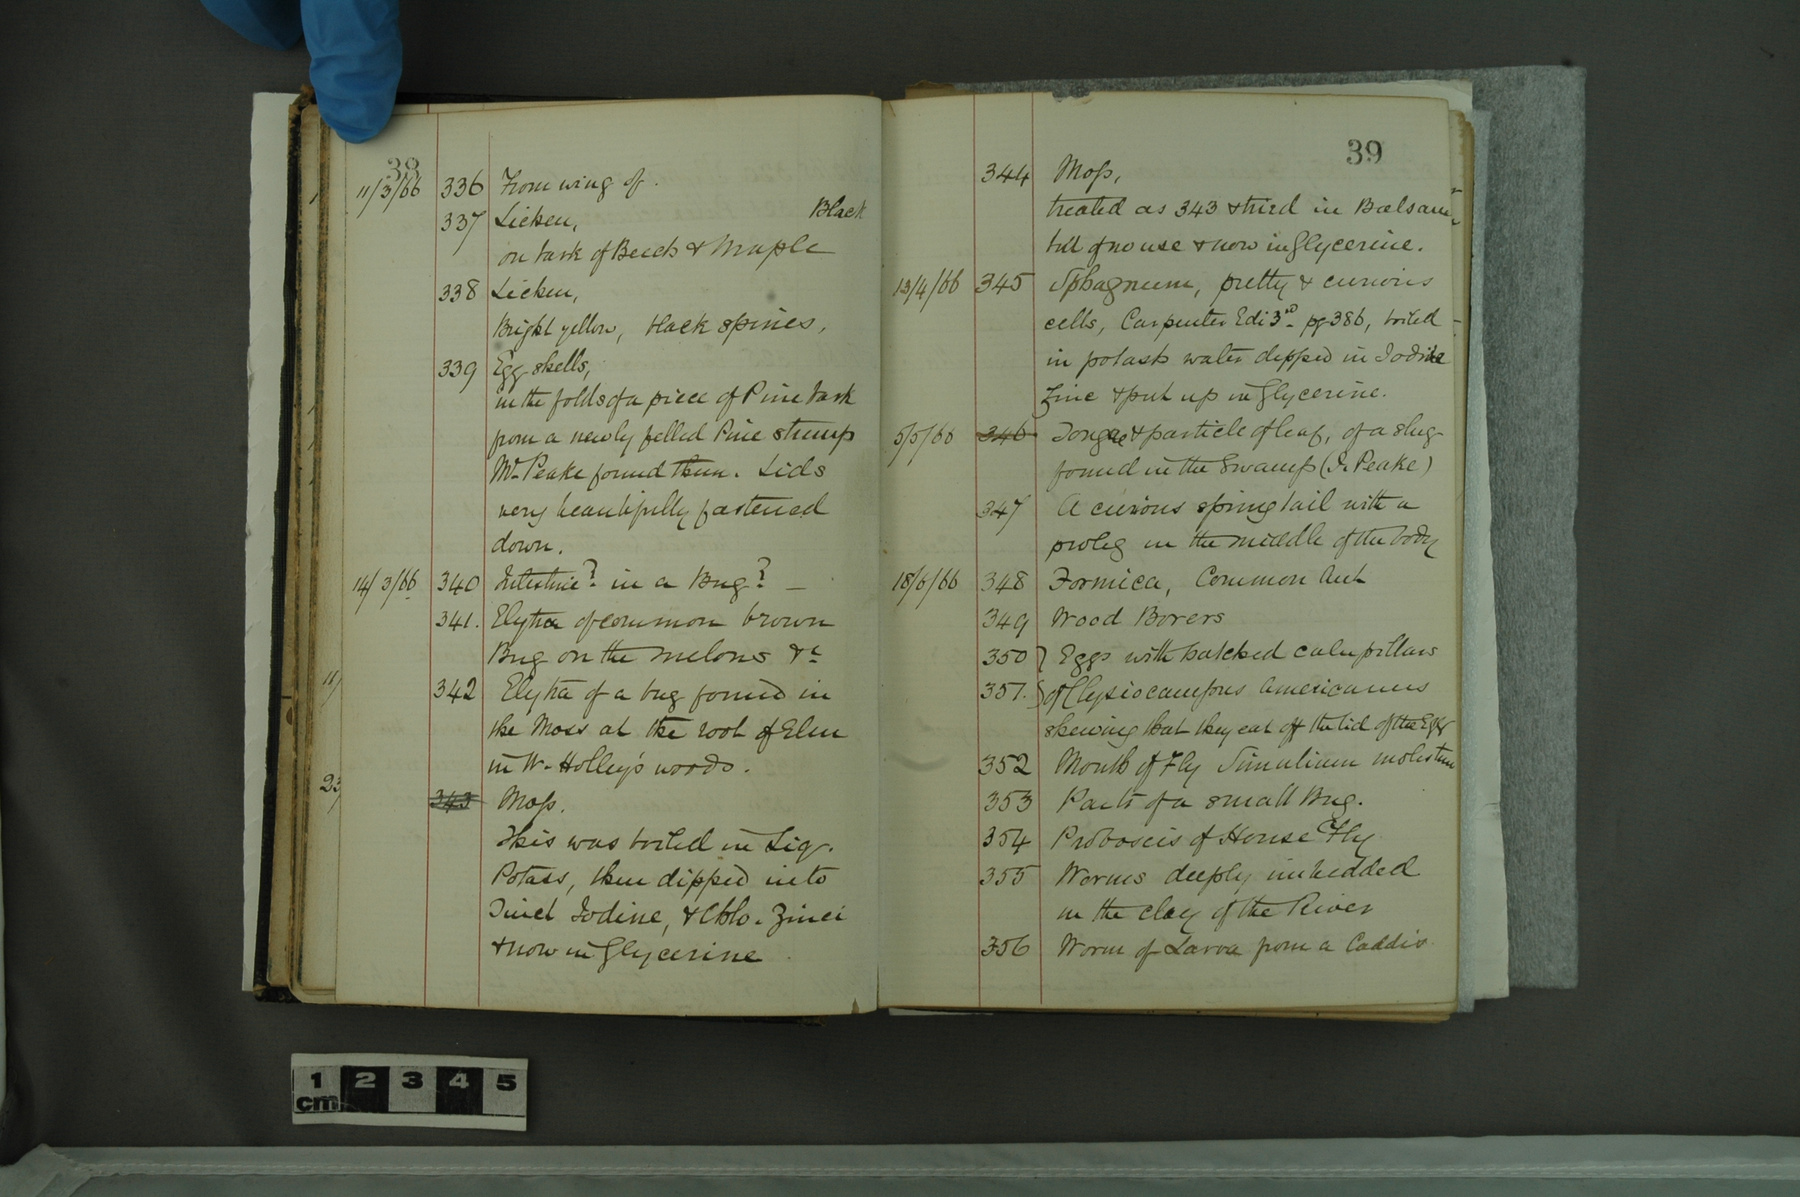 38
11/3/66 336 From wing of .
337 Licken, Black
on bark of Beech & Maple
338 Licken,
Bright yellow, black spines,
339 Egg shells,
in the folds of a piece of Pine bark
from a newly felled Pine stump
Mr. Peake found them. Lids
very beautifully fastened
down.
14/3/66 340 Intestine? in a Bug? –
341. Elytra of common brown
Bug on the melons &c
342 Elytra of a bug found in
the Moss at the root of Elm
in W. Holley's woods.
343 Moss.
This was boiled in Liq.
Potass, then dipped into
Tinct Iodine, & Chlo. Zinci
& now in Glycerine
39
344 Moss,
treated as 343 & tried in Balsam
but of no use & now in Glycerine.
13/4/66 345 Sphagnum, pretty & curious
cells, Carpenter Edi 3rd pg 386, boiled
in potash water dipped in Iodine
Zinc & put up in Glycerine.
5/5/66 346 Tongue & particle of leaf, of a slug
found in the Swamp (J. Peake)
347 A curious spring tail with a
proleg in the middle of the body
18/6/66 348 Formica, Common Ant
349 Wood Borers
350 } Eggs with hatched caterpillars
351. } of Clysiocampus Americanus
shewing that they eat off the lid of the Egg
352 Mouth of Fly Simulium molestum
353 Parts of a small Bug.
354 Proboscis of House Fly
355 Worms deeply imbedded
in the clay of the River
356 Worm of Larva from a Caddis
1 2 3 4 5
cm